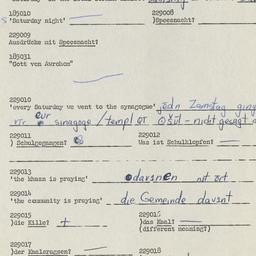 185010 229008
'Saturday night' )Spocsnacht?
229009
Ausdrücke mit Spocsnacht?
185031
"Gott von Avrohom"
229010
'every Saturday we went to the synagogue' jedn Zamstag ging
mr sinagoge / templ or Ošül - nicht gesagt
229011 229012
) Schulgegangen? Was ist Schulklopfen?
229013
'the khazn is praying' davsnen nit ort
229014
'the community is praying' die Gemeinde davsnt
229015 229016
)die Kille? + )das Kaal?
(different meaning?)
229017
)der Kmalsragosen? 229018